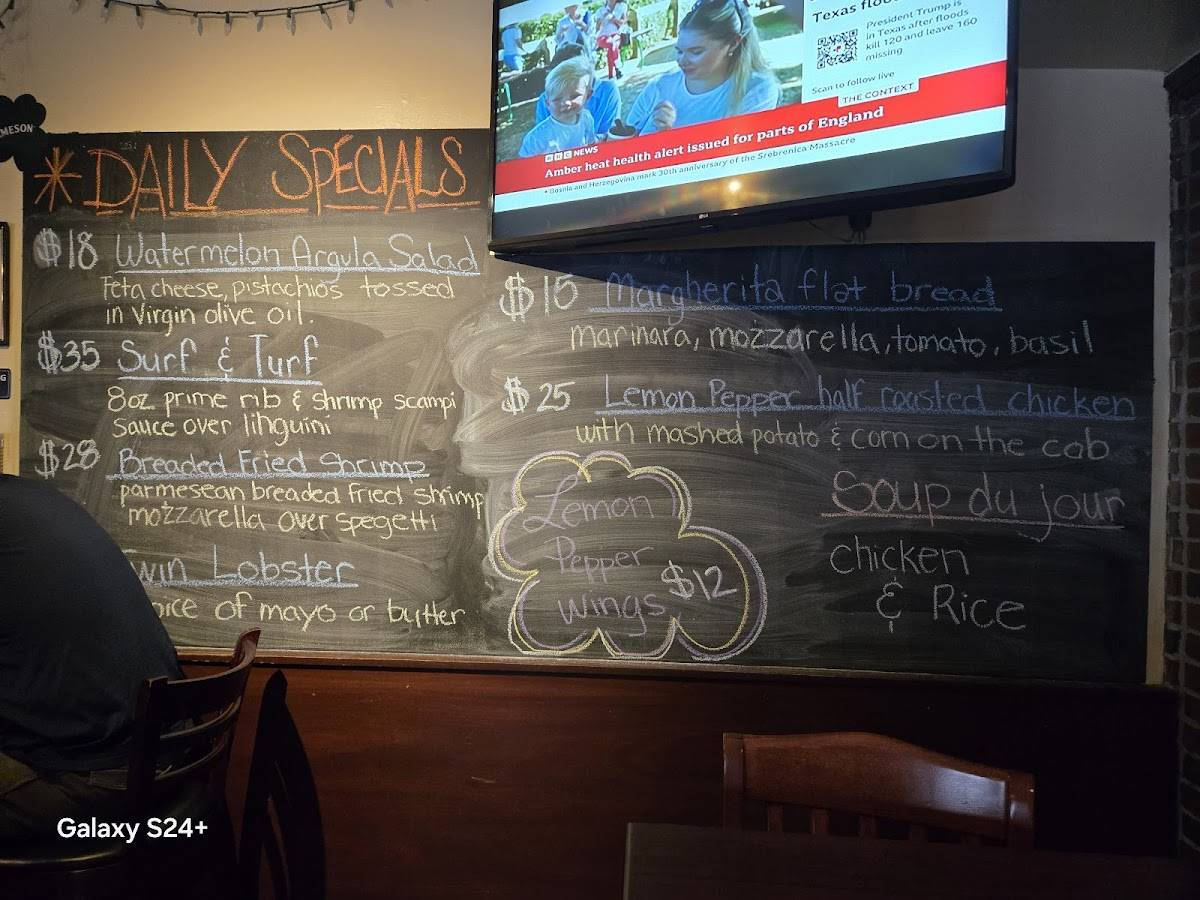 Texas floo
President Trump is
in Texas after floods
kill 120 and leave 160
missing
Scan to follow live
THE CONTEXT
BBC NEWS
Amber heat health alert issued for parts of England
• Bosnia and Herzegovina mark 30th anniversary of the Srebrenica Massacre
LG
MESON
* DAILY SPECIALS
$18 Watermelon Argula Salad
Feta cheese, pistachios tossed
in Virgin olive oil.
$35 Surf & Turf
8oz prime rib & shrimp scampi
sauce over linguini
$28 Breaded Fried Shrimp
parmesean breaded fried shrimp
mozzarella over spegetti
win Lobster
oice of mayo or butter
$15 Margherita flat bread
marinara, mozzarella, tomato, basil
$25 Lemon Pepper half roasted chicken
with mashed potato & corn on the cob
Lemon
Pepper
wings $12
Soup du jour
chicken
& Rice
Galaxy S24+